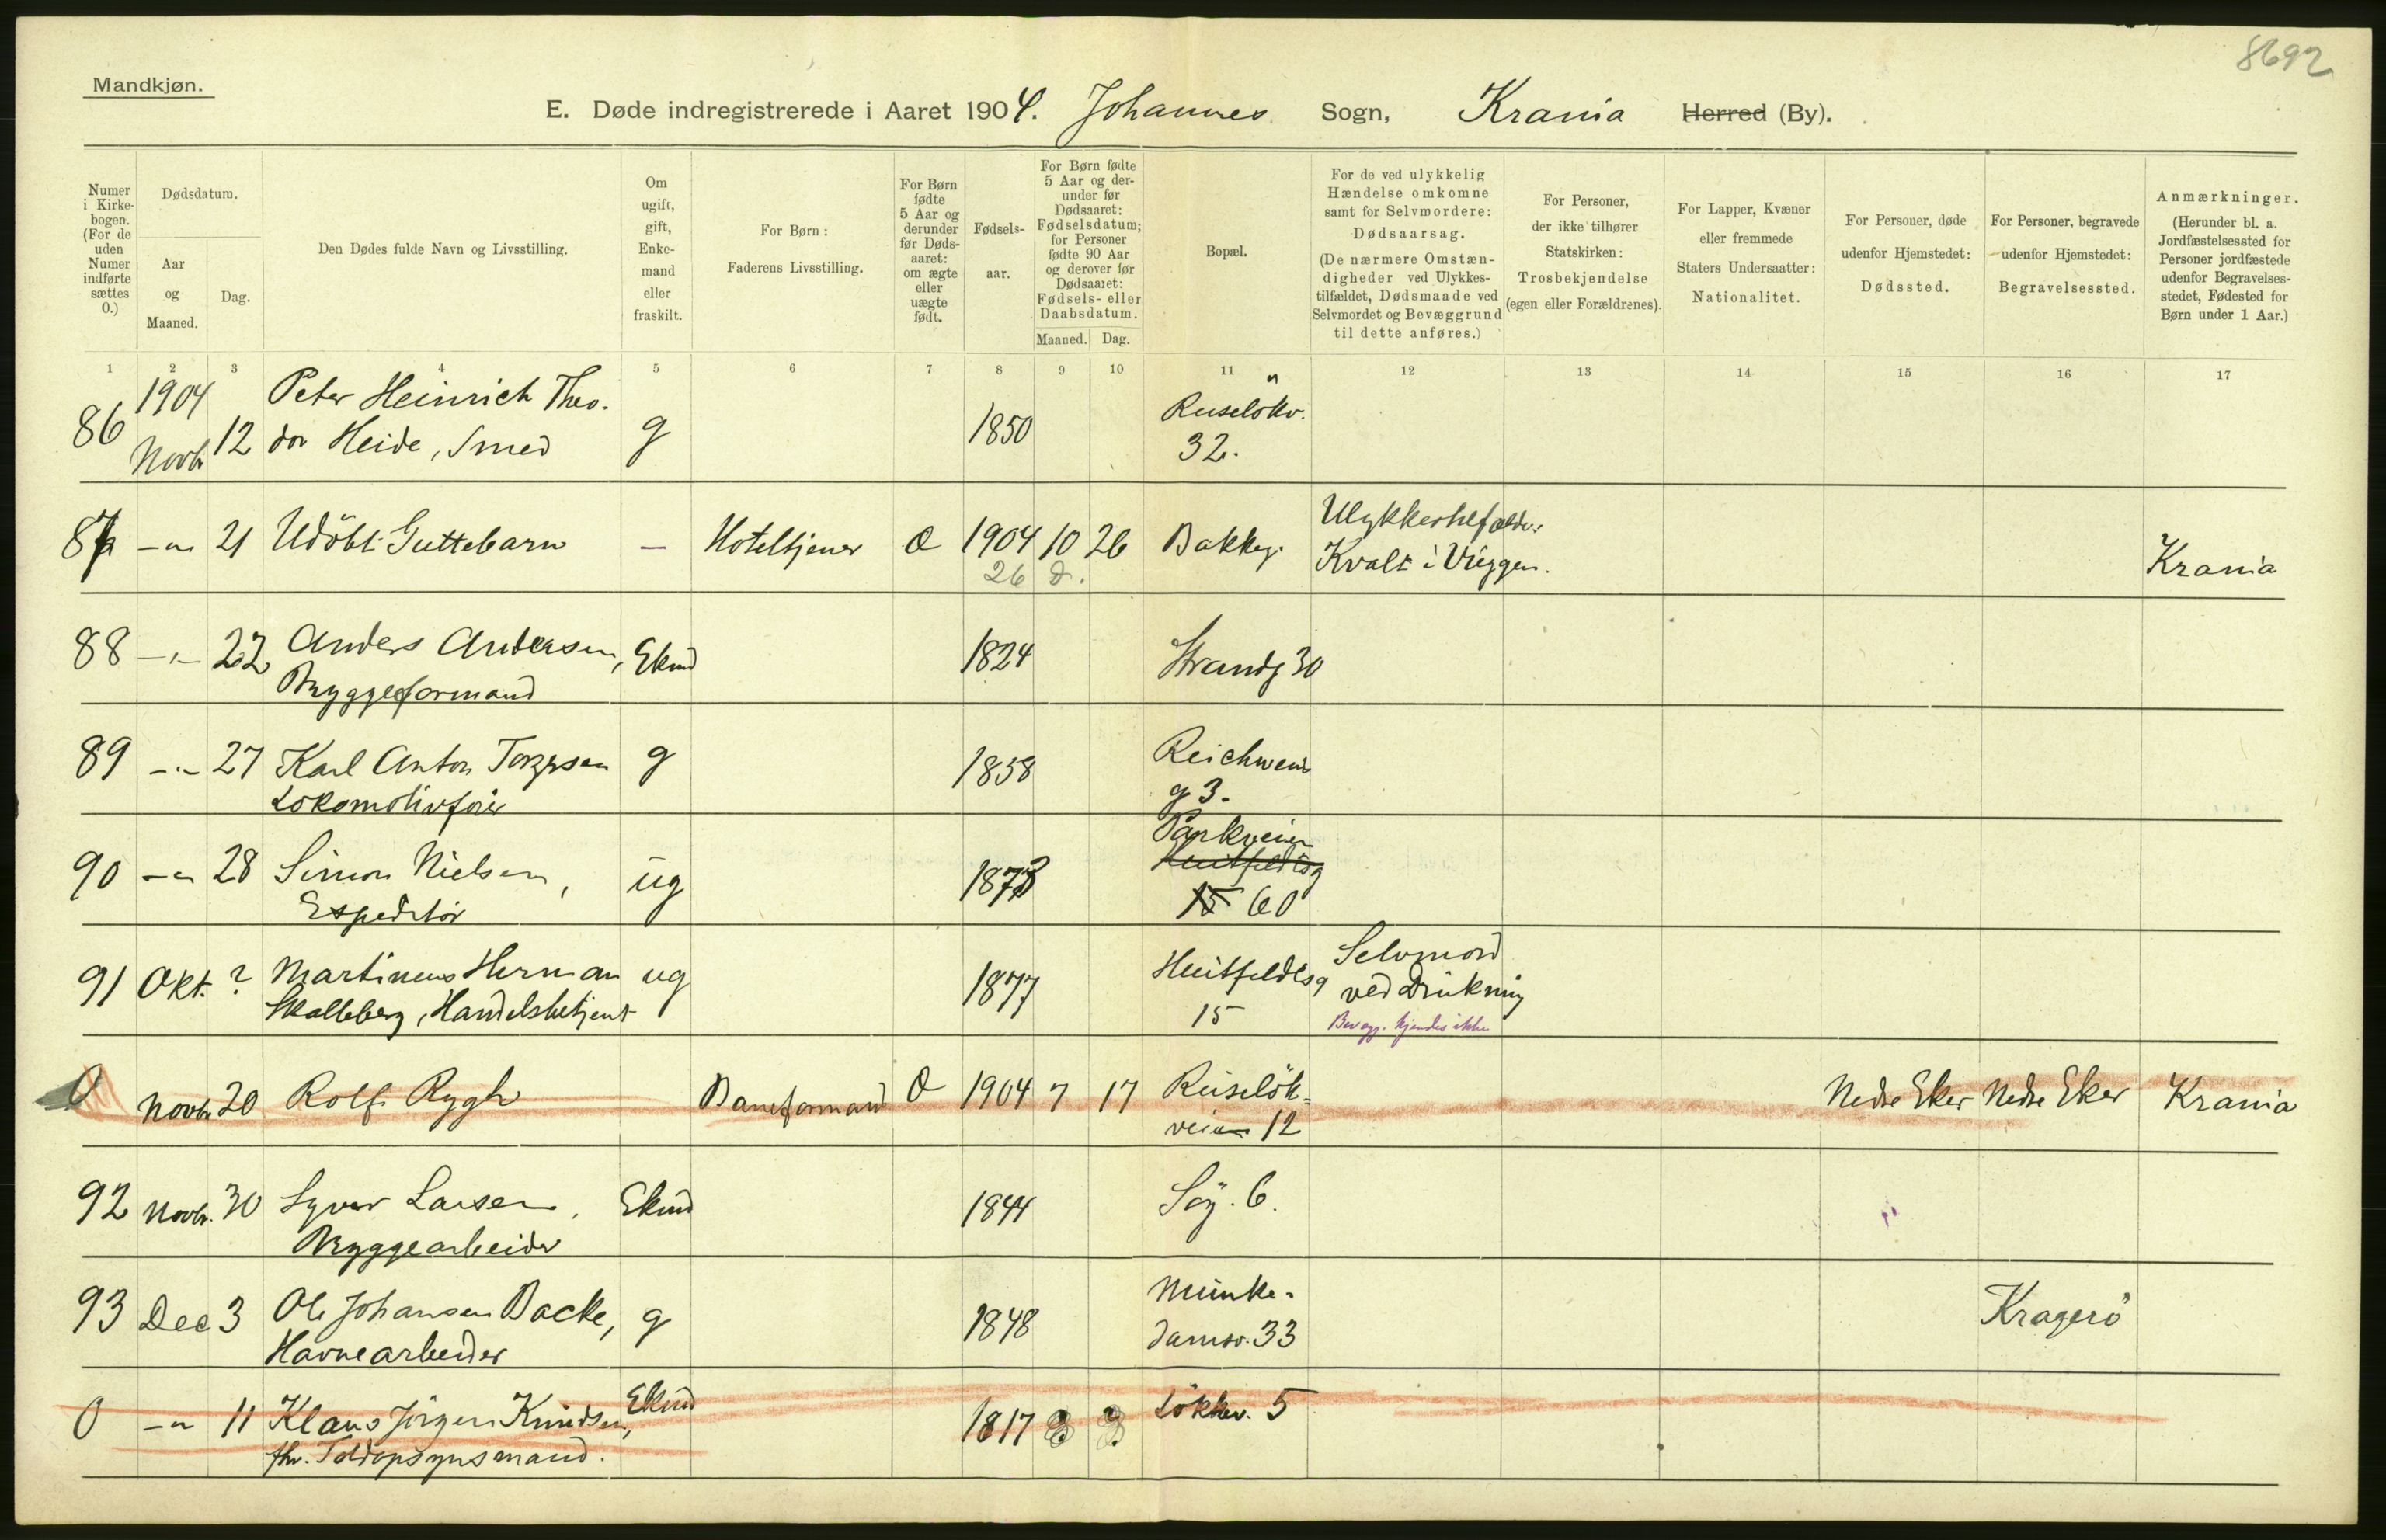 8692
Mandkjøn.
E. Døde indregistrerede i Aaret 1904. Johannes Sogn, Krania Herred (By).
Numer i Kirke-bogen. (For de uden Numer indførte sættes 0.)
Dødsdatum.
Aar og Maaned.
Dag.
Den Dødes fulde Navn og Livsstilling.
Om ugift, gift, Enke-mand eller fraskilt.
For Børn: Faderens Livsstilling.
For Børn fødte 5 Aar og derunder før Døds-aaret: om ægte eller uægte født.
Fødsels-aar.
For Børn fødte 5 Aar og der-under før Dødsaaret: Fødselsdatum; for Personer fødte 90 Aar og derover før Dødsaaret: Fødsels- eller Daabsdatum.
Maaned. Dag.
Bopæl.
For de ved ulykkelig Hændelse omkomne samt for Selvmordere: Dødsaarsag. (De nærmere Omstæn-digheder ved Ulykkes-tilfældet, Dødsmaade ved Selvmordet og Bevæggrund til dette anføres.)
For Personer, der ikke tilhører Statskirken: Trosbekjendelse (egen eller Forældrenes).
For Lapper, Kvæner eller fremmede Staters Undersaatter: Nationalitet.
For Personer, døde udenfor Hjemstedet: Dødssted.
For Personer, begravede udenfor Hjemstedet: Begravelsessted.
Anmærkninger. (Herunder bl. a. Jordfæstelsessted for Personer jordfæstede udenfor Begravelses-stedet, Fødested for Børn under 1 Aar.)
1 2 3 4 5 6 7 8 9 10 11 12 13 14 15 16 17
1904 Peter Heinrich Theo- Ruseløkv.
86 Novb 12 dor Heide, Smed g 1850 32.
87 -"- 21 Udöbt Guttebarn - Hoteltjener 1904 10 26 Bakkeg. Ulykkestilfælde:
26 d. Kvalt i Vuggen. Krania
88 -"- 22 Anders Andersen, Ekmd 1824 Strandg 30
Bryggeformand
89 -"- 27 Karl Anton Torgersen g 1858 Reichwens
Lokomotivfører g 3.
Parkveien
90 -"- 28 Simon Nielsen, ug 1873 Huitfeldtsg
Expeditör 15 60
91 Okt. ? Martinius Herman ug 1877 Huitfeldtsg Selvmord
Skalleberg, Handelsbetjent 15 ved Drukning
Bevægg. kjendes ikke
0 Novb 20 Rolf Rygh Baneformand 1904 7 17 Ruselök- Nedre Eker Nedre Eker Krania
veien 12
92 Novb. 30 Syver Larsen, Ekmd 1844 Sög. 6.
Bryggearbeider
93 Dec 3 Ole Johansen Backe, g 1848 Munke- Kragerö
Havnearbeider damsv. 33
0 -"- 11 Klaus Jörgen Knudsen, Ekmd 1817 Lökkev. 5
fhv. Toldopsynsmand.